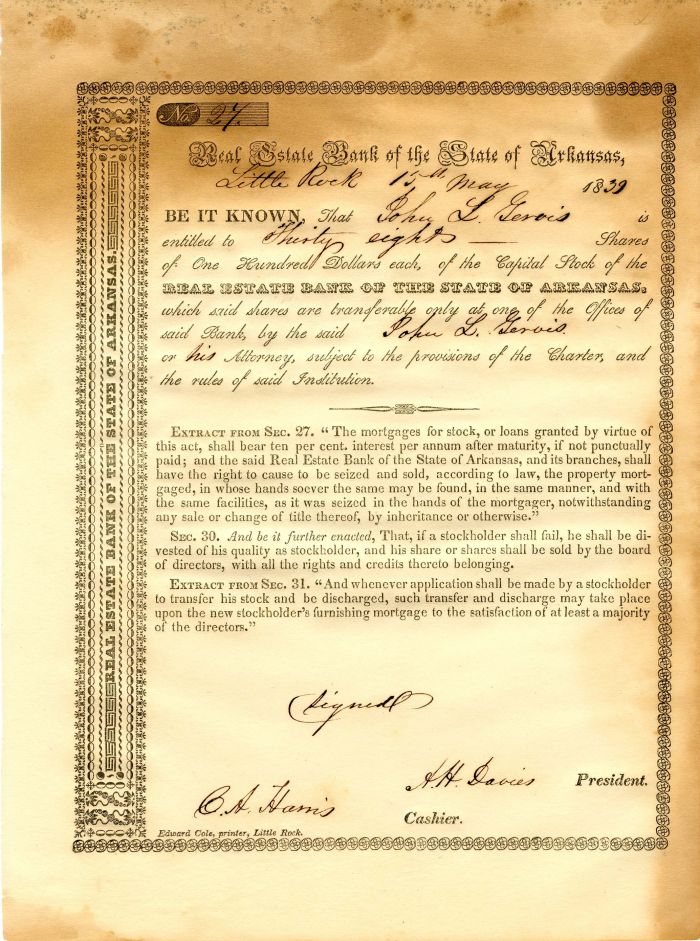 No. 27.
Real Estate Bank of the State of Arkansas,
Little Rock 15th May 1839
BE IT KNOWN, That John L. Gervis is
entitled to Thirty eight — Shares
of One Hundred Dollars each, of the Capital Stock of the
REAL ESTATE BANK OF THE STATE OF ARKANSAS,
which said shares are transferable only at one of the Offices of
said Bank, by the said John L. Gervis
or his Attorney, subject to the provisions of the Charter, and
the rules of said Institution.
EXTRACT FROM SEC. 27. "The mortgages for stock, or loans granted by virtue of
this act, shall bear ten per cent. interest per annum after maturity, if not punctually
paid; and the said Real Estate Bank of the State of Arkansas, and its branches, shall
have the right to cause to be seized and sold, according to law, the property mort-
gaged, in whose hands soever the same may be found, in the same manner, and with
the same facilities, as it was seized in the hands of the mortgager, notwithstanding
any sale or change of title thereof, by inheritance or otherwise."
SEC. 30. And be it further enacted, That, if a stockholder shall fail, he shall be di-
vested of his quality as stockholder, and his share or shares shall be sold by the board
of directors, with all the rights and credits thereto belonging.
EXTRACT FROM SEC. 31. "And whenever application shall be made by a stockholder
to transfer his stock and be discharged, such transfer and discharge may take place
upon the new stockholder's furnishing mortgage to the satisfaction of at least a majority
of the directors."
Signed
A. H. Davies President.
C. A. Harris Cashier.
Edward Cole, printer, Little Rock.
REAL ESTATE BANK OF THE STATE OF ARKANSAS.